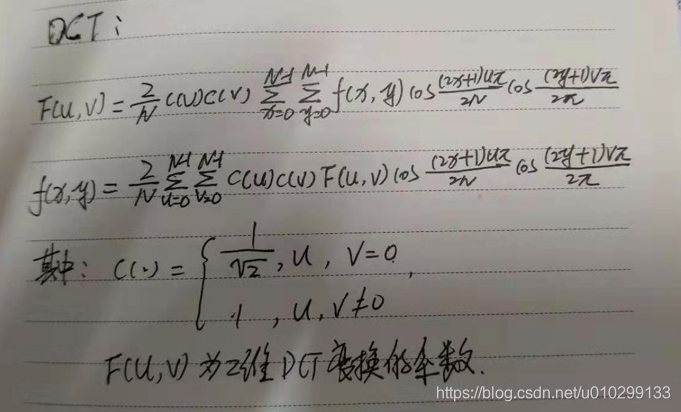 DCT:
F(u,v) = 2/N C(u)C(v) Σ_{x=0}^{N-1} Σ_{y=0}^{N-1} f(x,y) cos (2x+1)uπ/2N cos (2y+1)vπ/2π
f(x,y) = 2/N Σ_{u=0}^{N-1} Σ_{v=0}^{N-1} C(u)C(v) F(u,v) cos (2x+1)uπ/2N cos (2y+1)vπ/2π
其中: C(·) = { 1/√2, u, v=0,
1, u, v≠0
F(u,v)为二维DCT变换的系数.
https://blog.csdn.net/u010299133